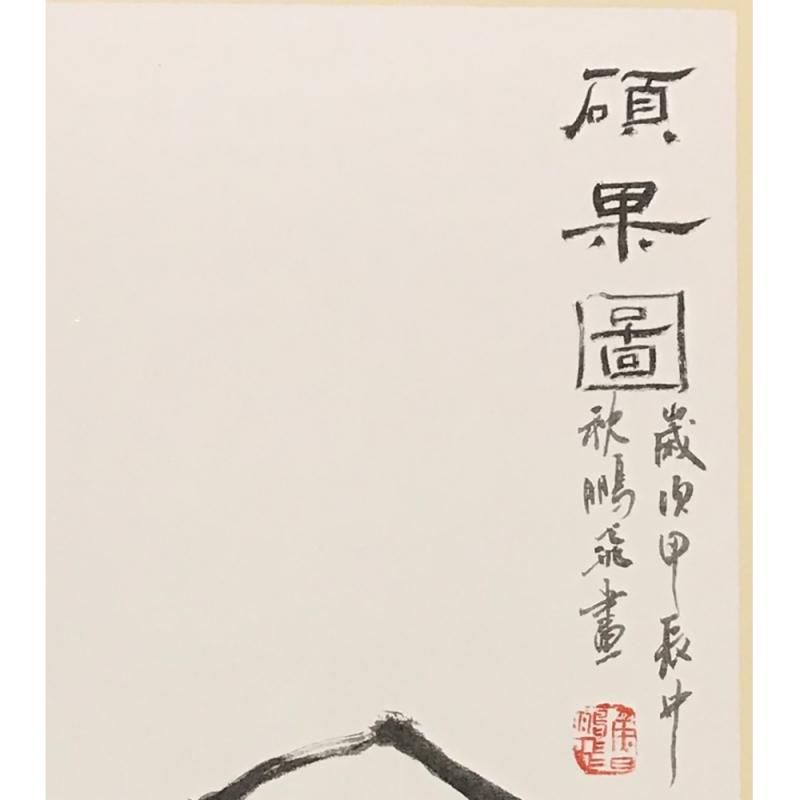 碩果圖
歲次甲辰中
秋鵬飛畫